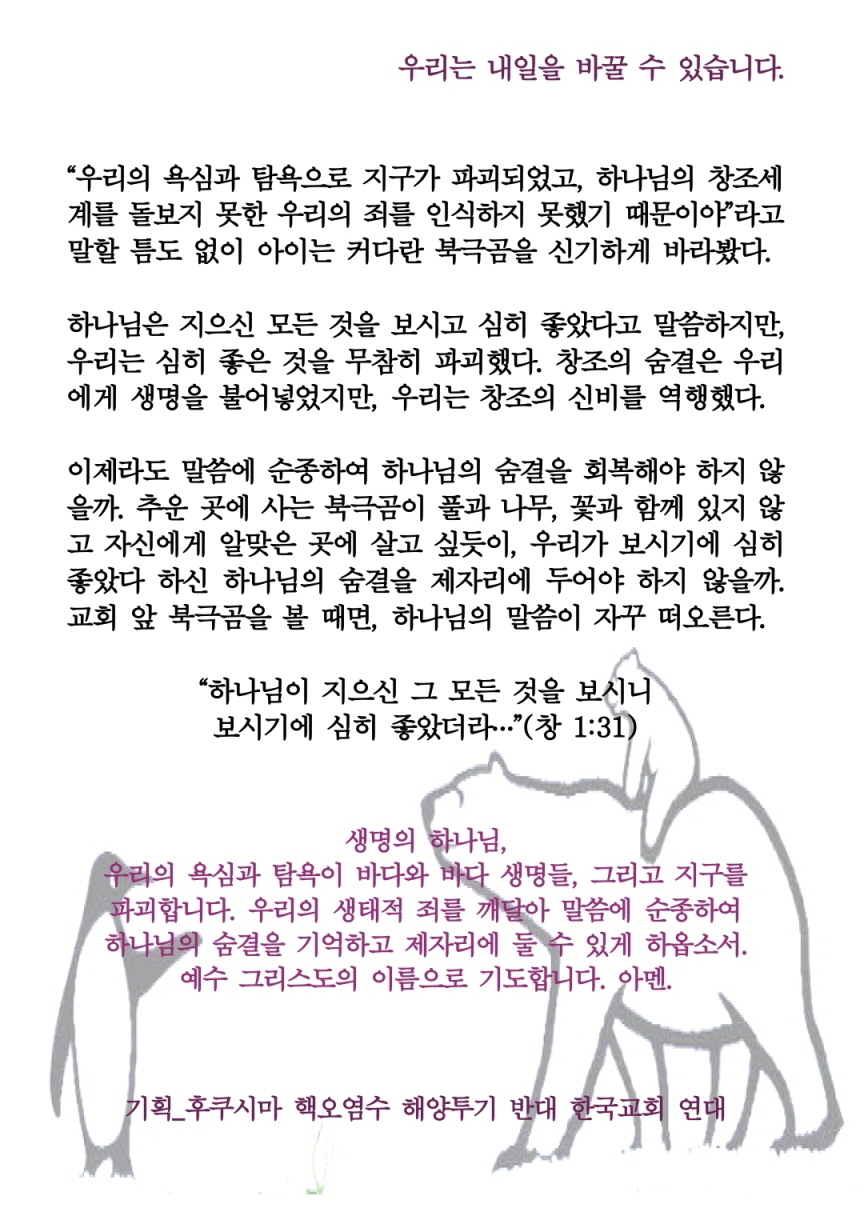 우리는 내일을 바꿀 수 있습니다.
“우리의 욕심과 탐욕으로 지구가 파괴되었고, 하나님의 창조세
계를 돌보지 못한 우리의 죄를 인식하지 못했기 때문이야”라고
말할 틈도 없이 아이는 커다란 북극곰을 신기하게 바라봤다.
하나님은 지으신 모든 것을 보시고 심히 좋았다고 말씀하지만,
우리는 심히 좋은 것을 무참히 파괴했다. 창조의 숨결은 우리
에게 생명을 불어넣었지만, 우리는 창조의 신비를 역행했다.
이제라도 말씀에 순종하여 하나님의 숨결을 회복해야 하지 않
을까. 추운 곳에 사는 북극곰이 풀과 나무, 꽃과 함께 있지 않
고 자신에게 알맞은 곳에 살고 싶듯이, 우리가 보시기에 심히
좋았다 하신 하나님의 숨결을 제자리에 두어야 하지 않을까.
교회 앞 북극곰을 볼 때면, 하나님의 말씀이 자꾸 떠오른다.
“하나님이 지으신 그 모든 것을 보시니
보시기에 심히 좋았더라…”(창 1:31)
생명의 하나님,
우리의 욕심과 탐욕이 바다와 바다 생명들, 그리고 지구를
파괴합니다. 우리의 생태적 죄를 깨달아 말씀에 순종하여
하나님의 숨결을 기억하고 제자리에 둘 수 있게 하옵소서.
예수 그리스도의 이름으로 기도합니다. 아멘.
기획_후쿠시마 핵오염수 해양투기 반대 한국교회 연대